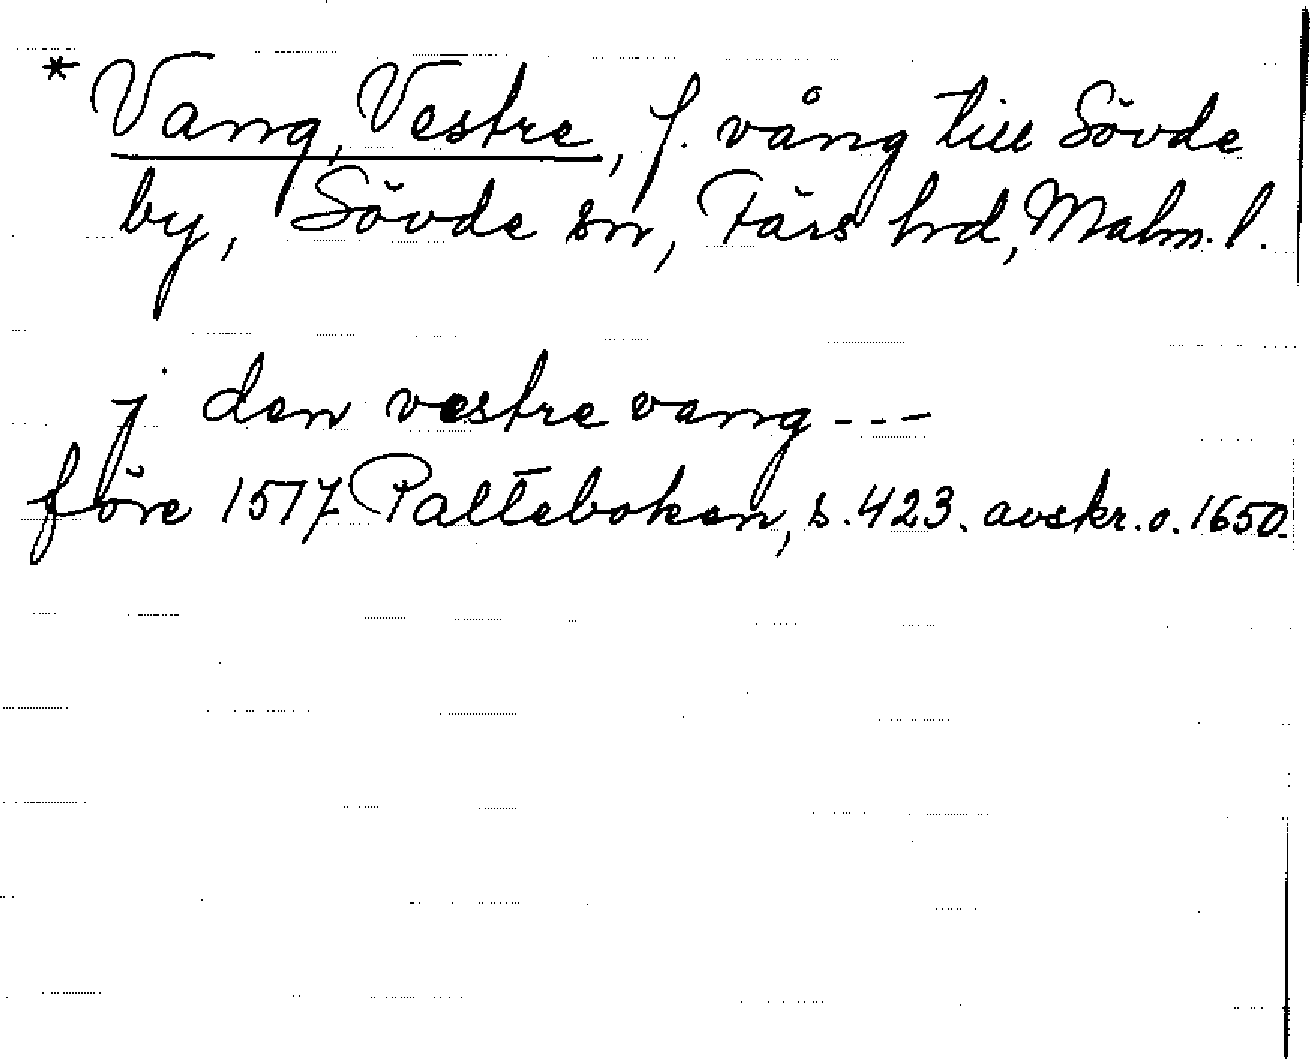 * Vang, Vestre, f. vång till Sövde
by, Sövde sn, Färs hrd, Malm. l.
j den vestre vang - - -
före 1517 Palteboken, s. 423. avskr. o. 1650.